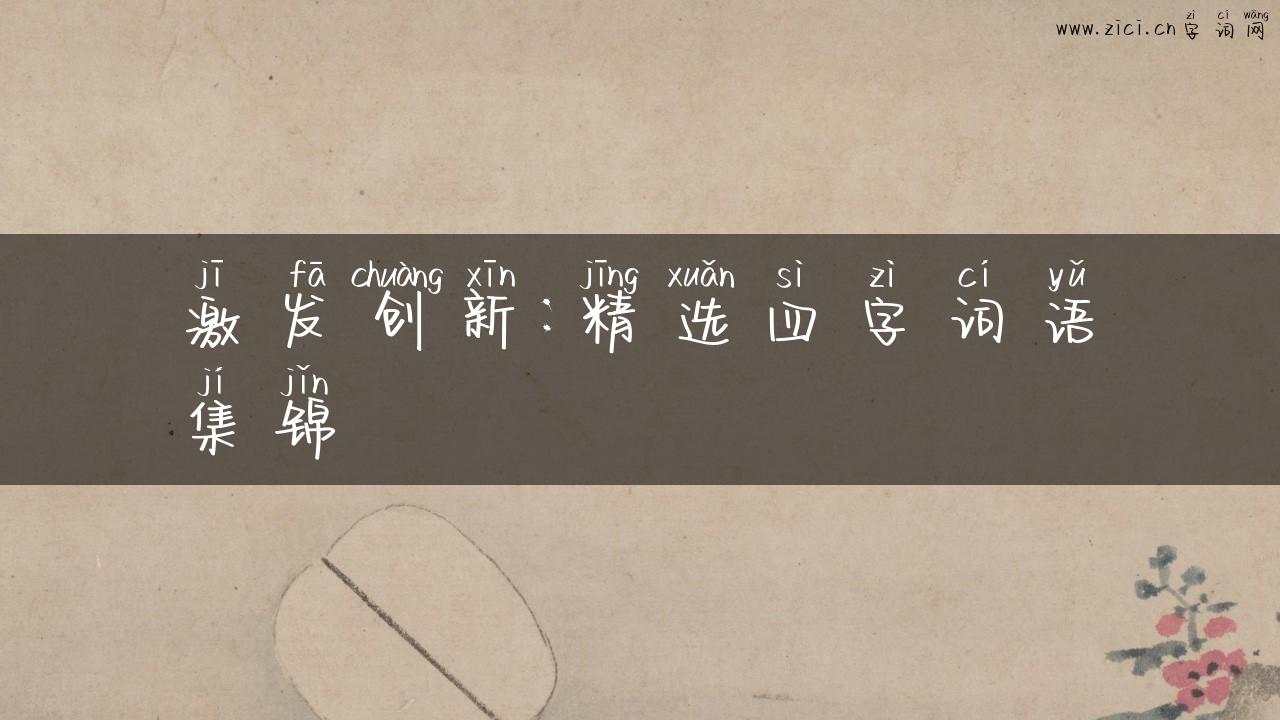 zì cí wǎng
www.zici.cn字词网
jī fā chuàng xīn jīng xuǎn sì zì cí yǔ
激发创新：精选四字词语
jí jǐn
集锦